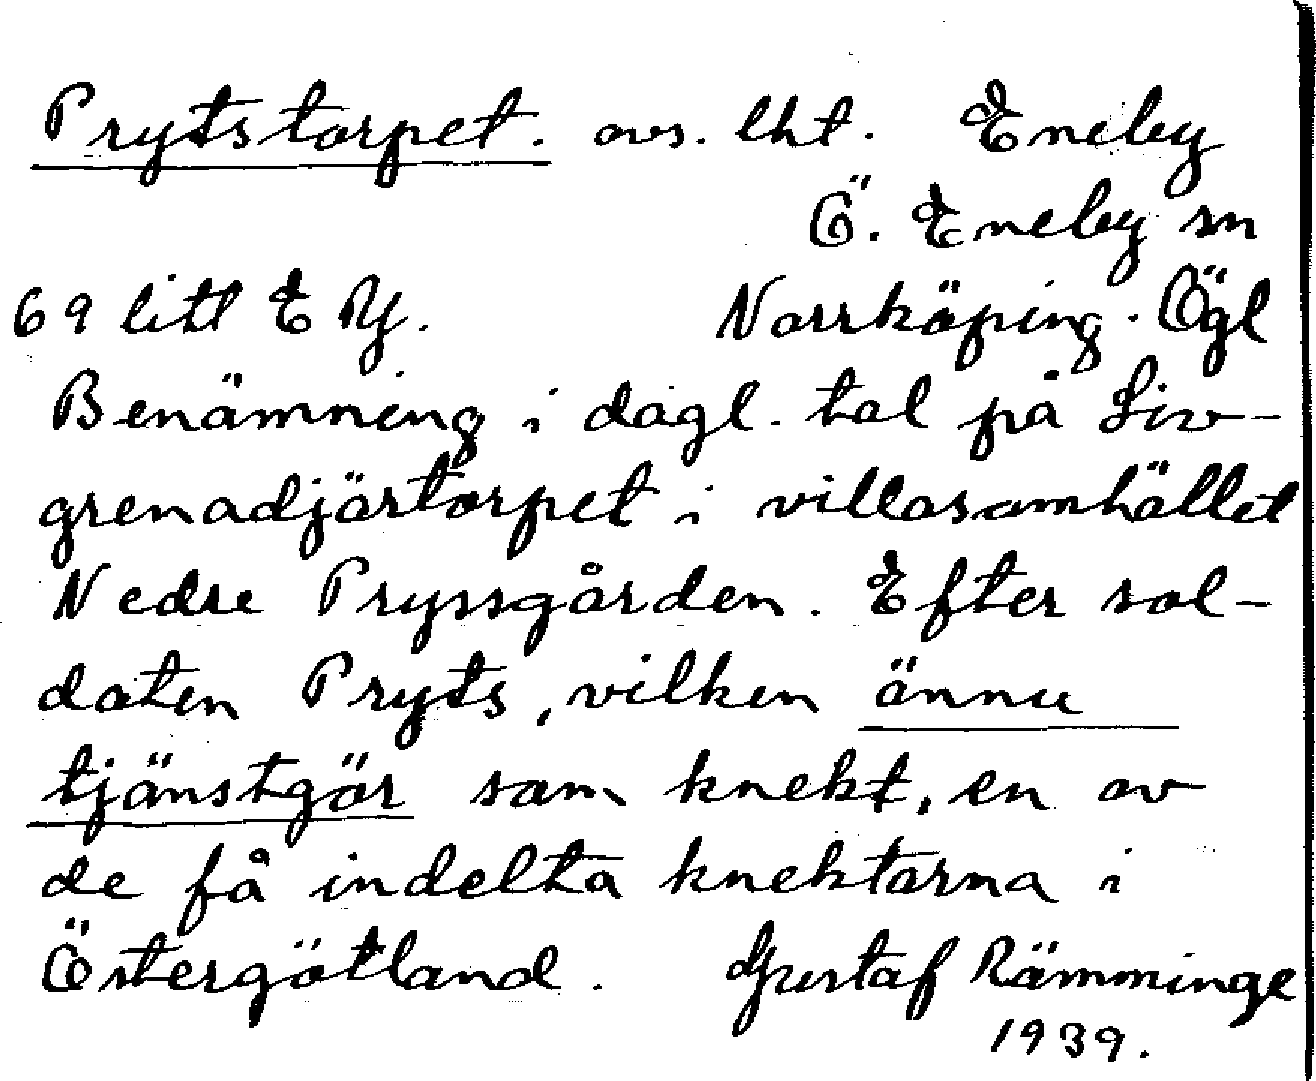 Prytstorpet. avs. lht. Eneby
Ö. Eneby sn
69 litt E Ry. Norrköping. Ögl
Benämning i dagl. tal på Liv-
grenadjärtorpet i villasamhället
Nedre Pryssgården. Efter sol-
daten Pryts, vilken ännu
tjänstgör som knekt, en av
de få indelta knektarna i
Östergötland. Gustaf Rämminge
1939.